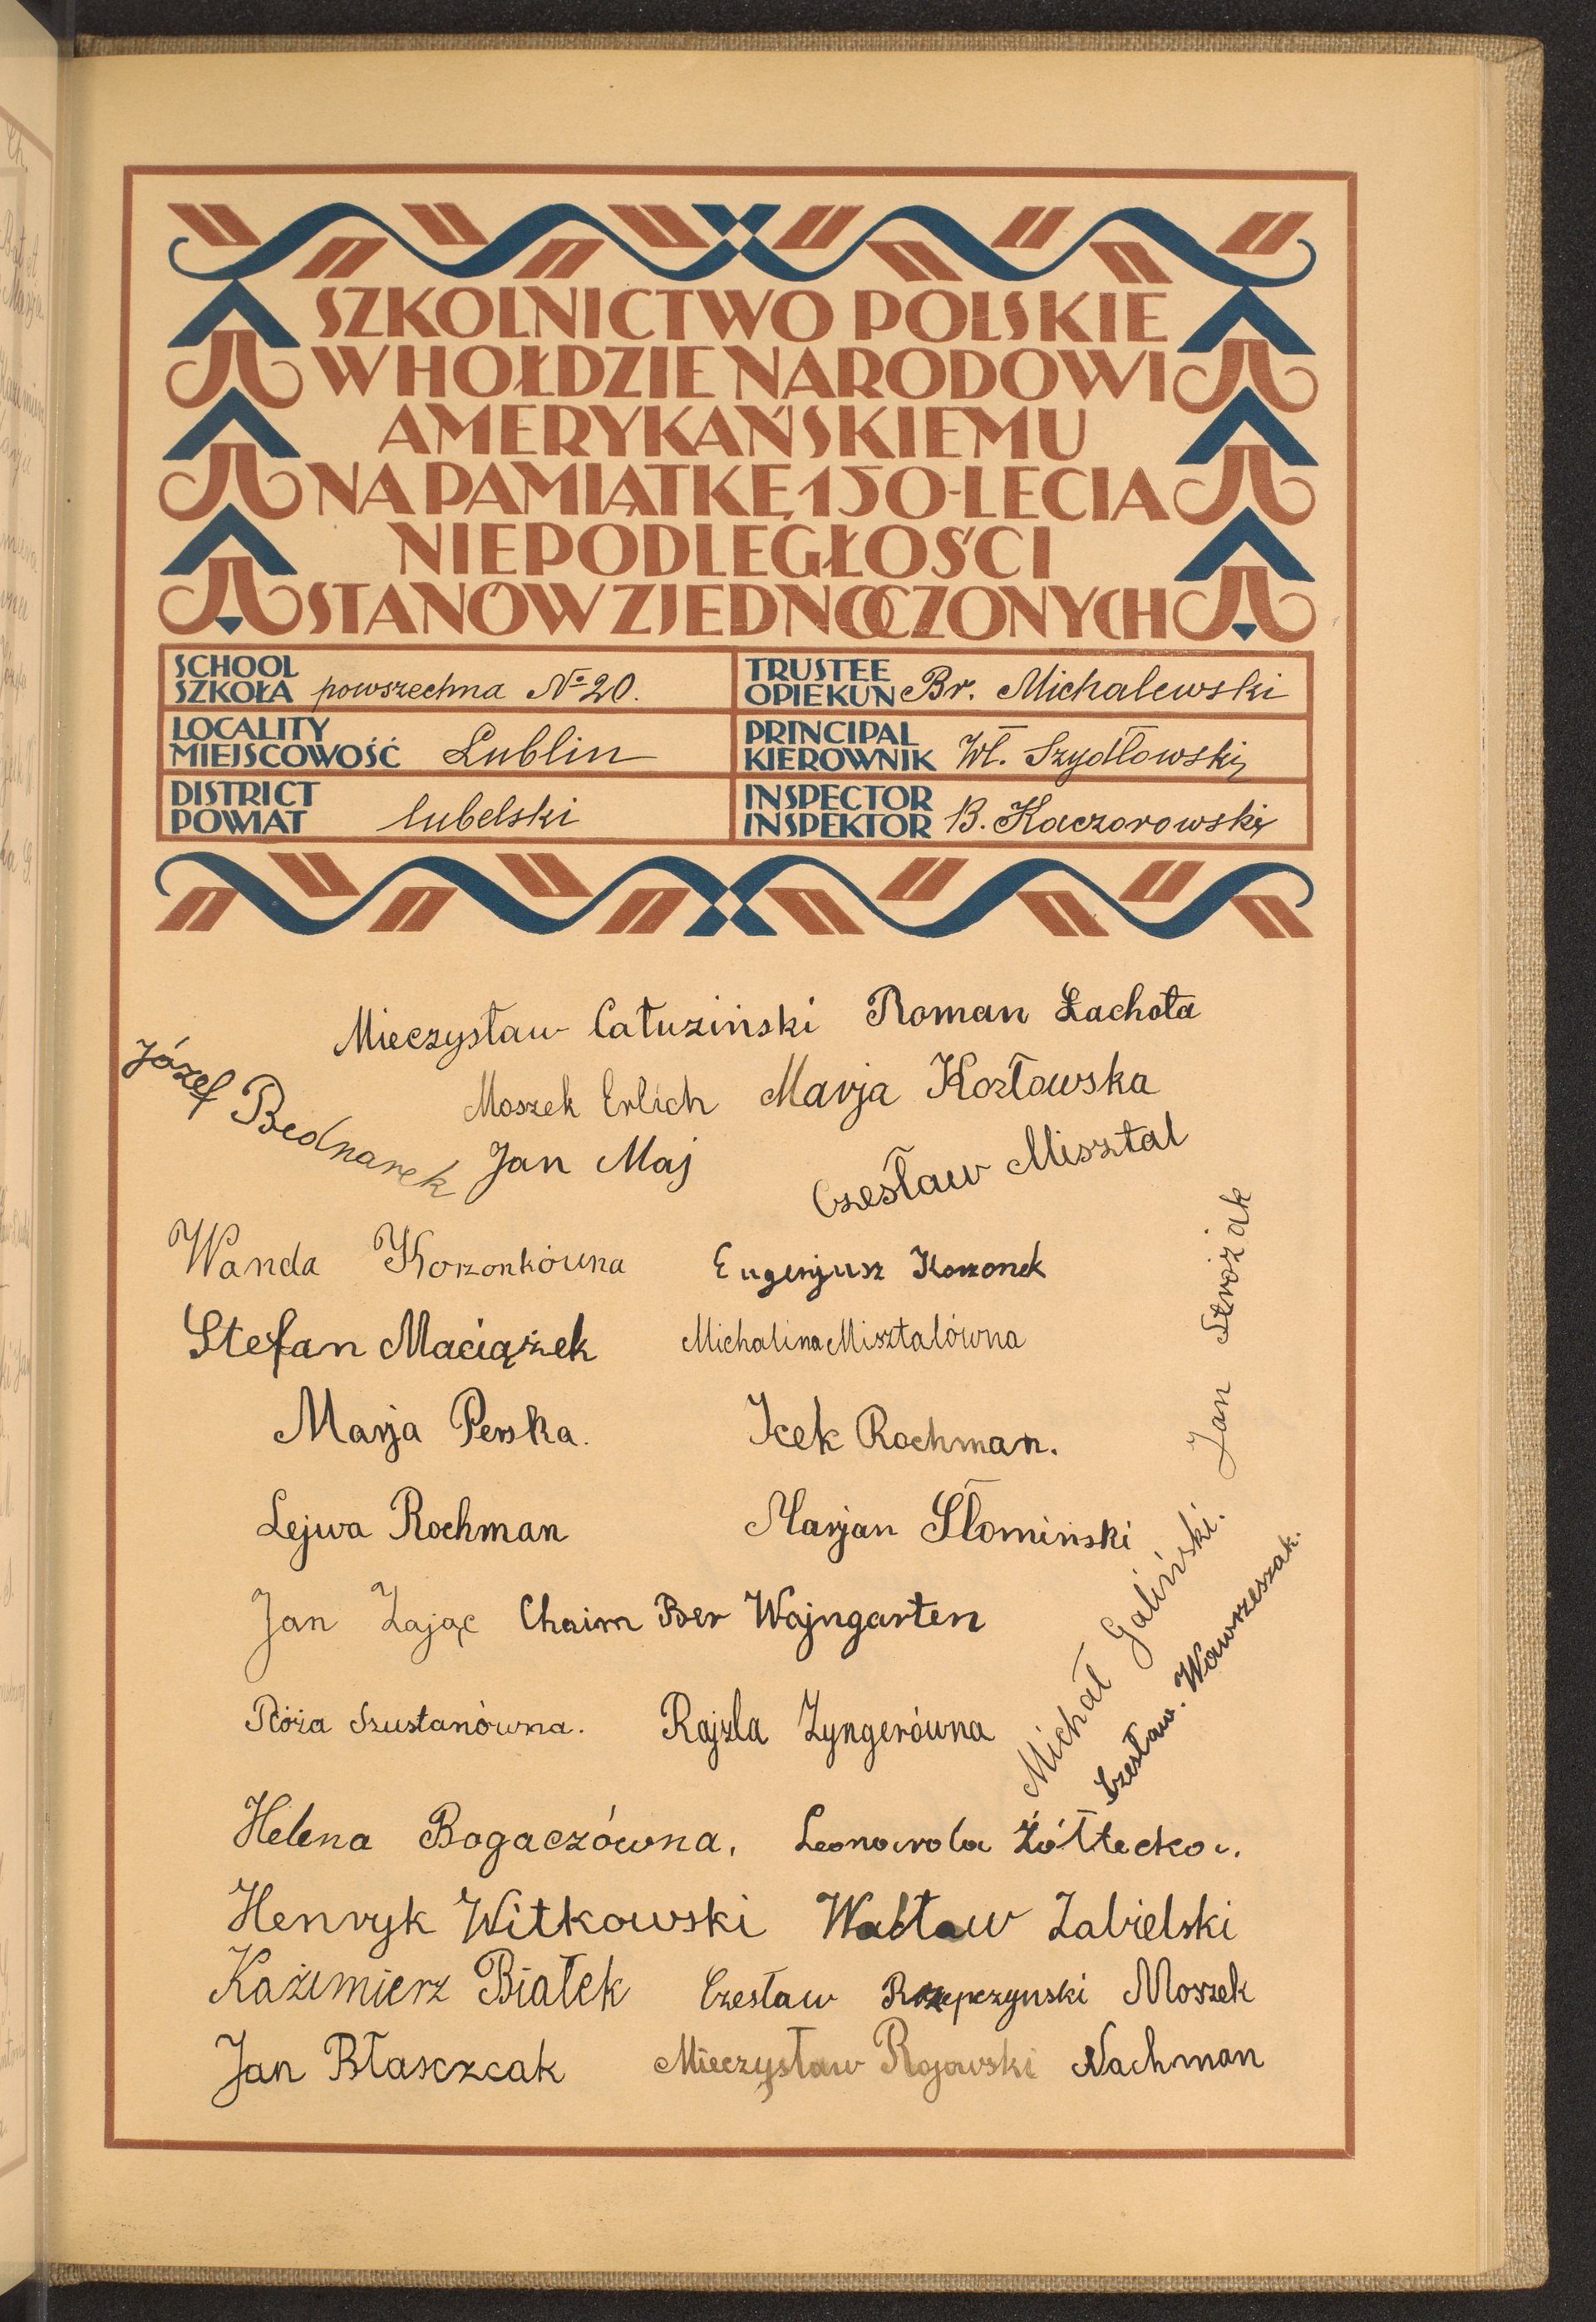 SZKOLNICTWO POLSKIE
W HOŁDZIE NARODOWI
AMERYKAŃSKIEMU
NA PAMIĄTKĘ 150-LECIA
NIEPODLEGŁOŚCI
STANÓW ZJEDNOCZONYCH
SCHOOL
SZKOŁA powszechna № 20.
TRUSTEE
OPIEKUN Br. Michalewski
LOCALITY
MIEJSCOWOŚĆ Lublin
PRINCIPAL
KIEROWNIK Wł. Szydłowski
DISTRICT
POWIAT lubelski
INSPECTOR
INSPEKTOR B. Kaczorowski
Mieczysław Całuziński Roman Łachota
Józef Bednarek
Moszek Erlich Marja Kozłowska
Jan Maj Czesław Misztal
Wanda Korzonkówna Eugenjusz Korzonek
Jan Stróżak
Stefan Maciążek Michalina Misztalówna
Marja Perska. Icek Rochman.
Lejwa Rochman Marjan Słomiński
Michał Galiński.
Czesław. Wawrzeszak.
Jan Zając Chaim Ber Wajngarten
Róża Szustanówna. Rajzla Zyngerówna
Helena Bogaczówna. Leonarda Żółtecka.
Henryk Witkowski Wacław Zabielski
Kaźimierz Białek Czesław Rzepczynski Moszek
Jan Błasczcak Mieczysław Rojowski Nachman